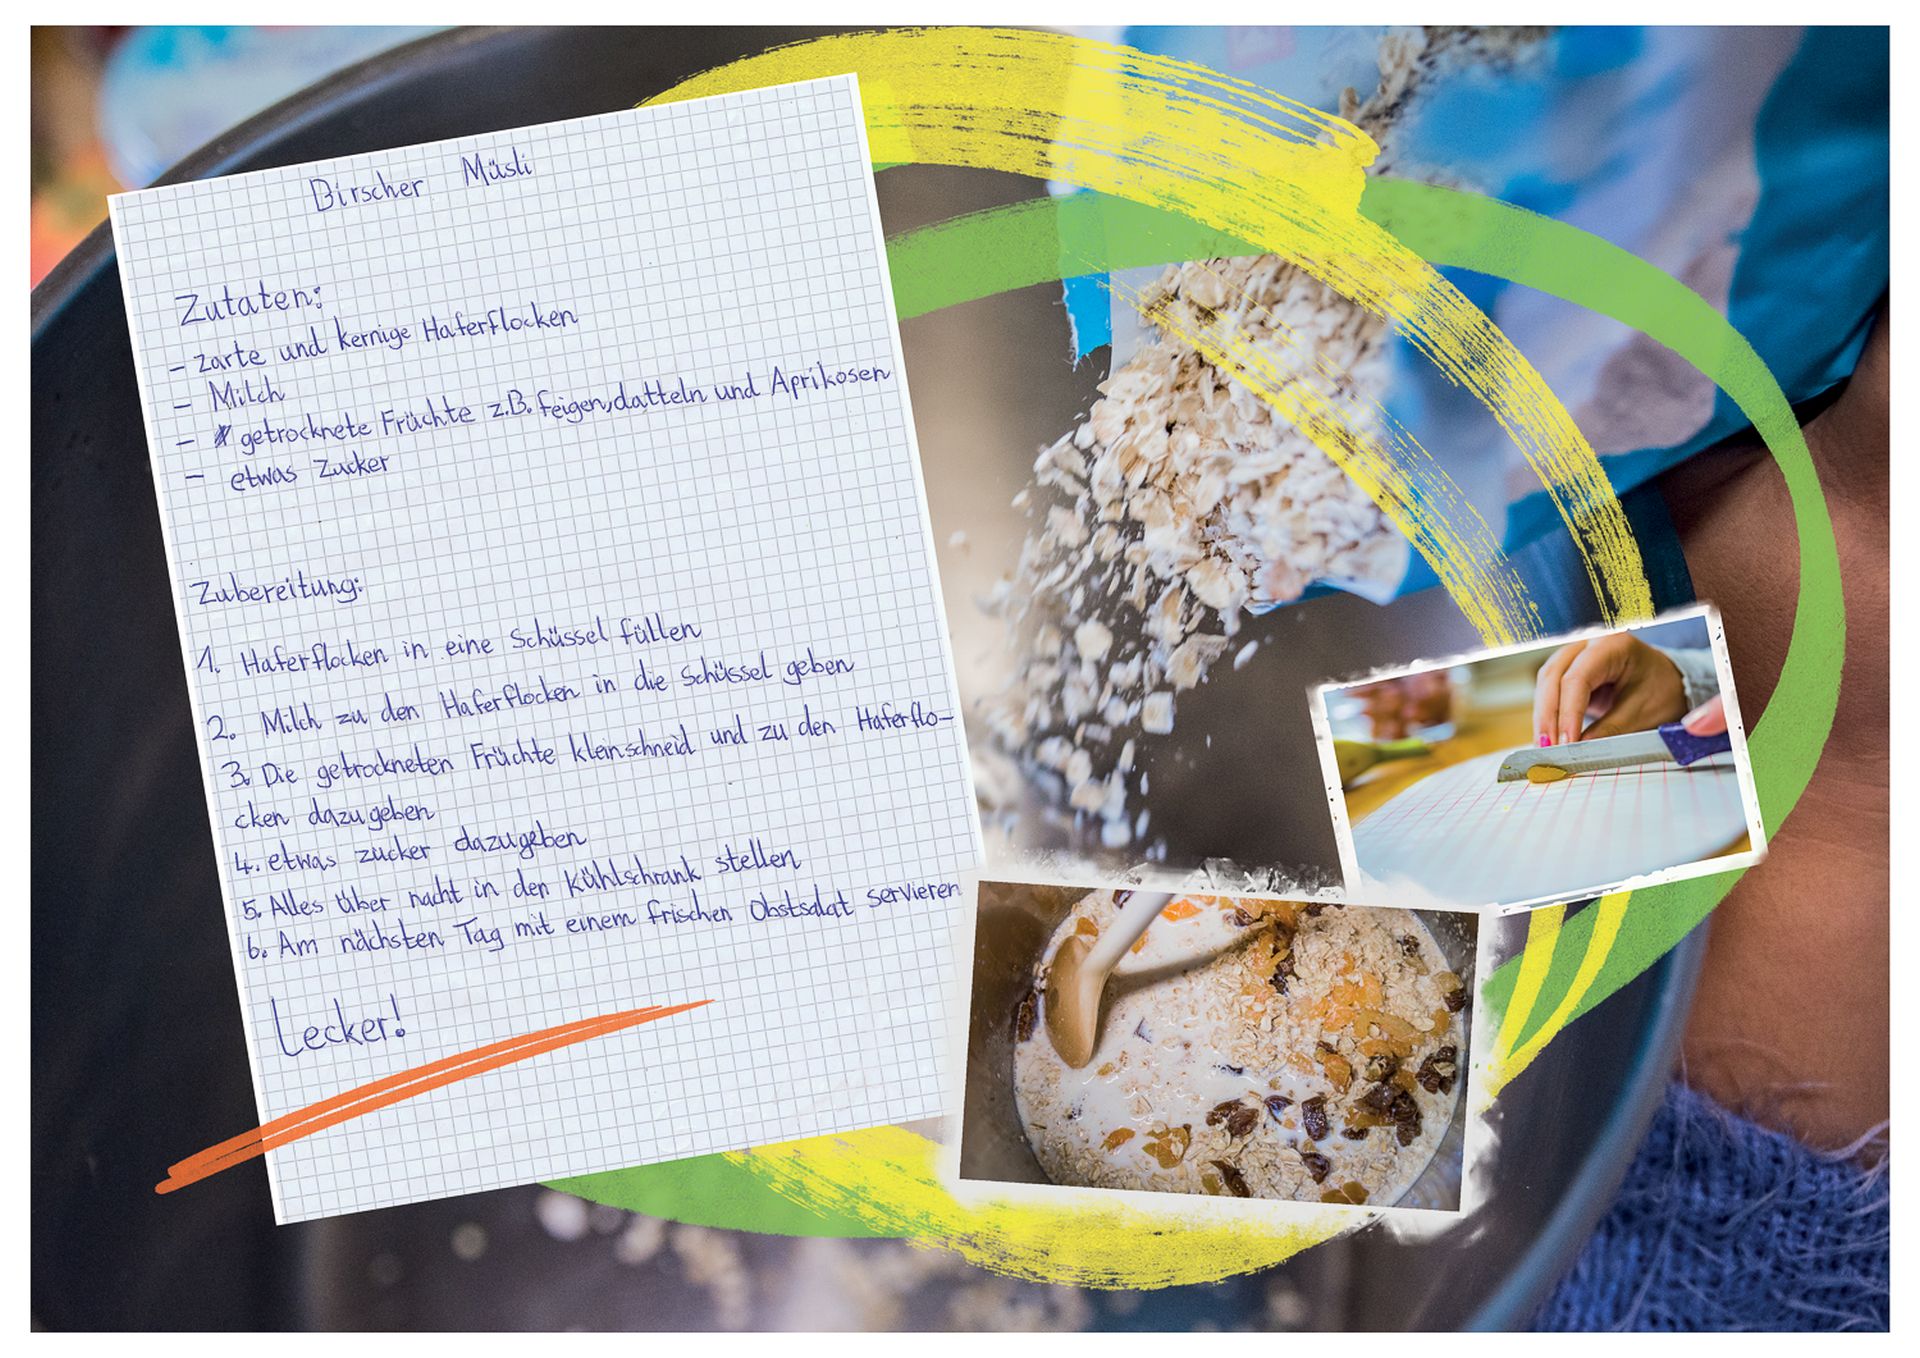 Birscher Müsli
Zutaten:
- zarte und kernige Haferflocken
- Milch
- getrocknete Früchte z.B. feigen, datteln und Aprikosen
- etwas Zucker
Zubereitung:
1. Haferflocken in eine Schüssel füllen
2. Milch zu den Haferflocken in die Schüssel geben
3. Die getrockneten Früchte kleinschneid und zu den Haferflo-
cken dazugeben
4. etwas zucker dazugeben
5. Alles über nacht in den Kühlschrank stellen
6. Am nächsten Tag mit einem frischen Obstsalat servieren
Lecker!